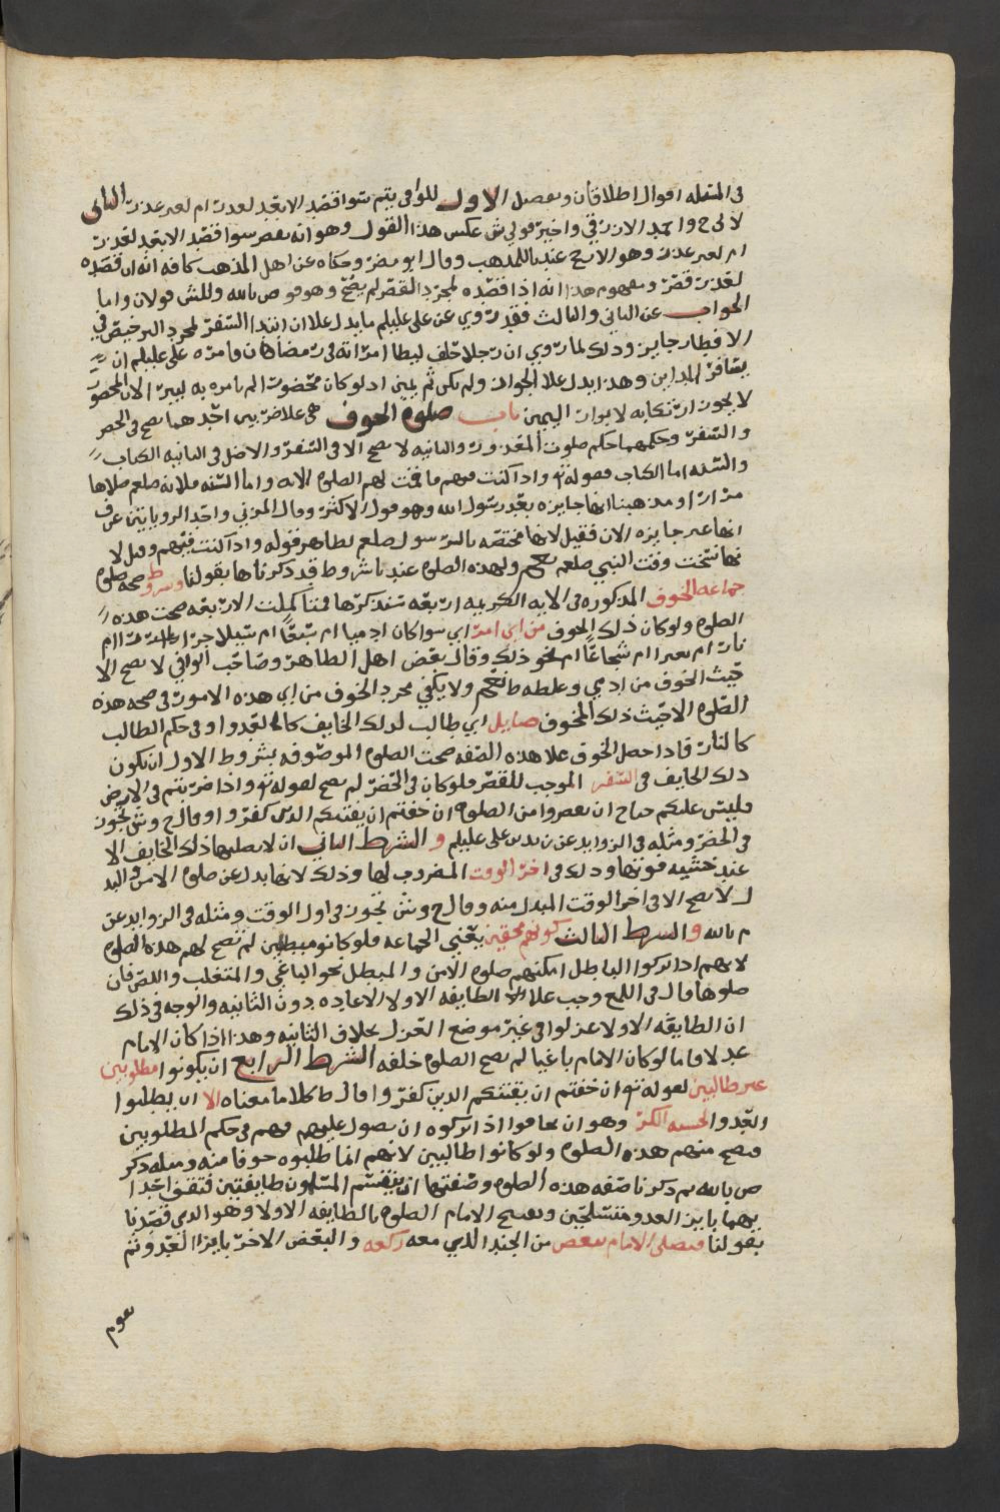 في المسله اقوال اطلاقان وتفصيل الاول للوافي يتم سوا قصد الابعد لعذر ام لغير عذر الثاني
وهو انه يقصر سوا قصد الابعد لعذر
ام لغير عذر وهو الاصح عند للمذهب وقال ابو مضر وحكاه عن اهل المذهب كافه انه ان قصده
لعذر قصر ومفهوم هذا انه اذا قصده لمجرد القصر لم يصح وهو قو ص بالله وللش قولان واما
الجواب عن الثاني والثالث فقد روي عن علي عليلم ما يدل علا ان انشا السفر لمجرد الترخيص في
الافطار جايز وذلك لما روي ان رجلا حلف ليطا امراته في رمضان فامره علي عليلم ان
يسافر المداين وهذا يدل علا الجواز ولم يكن ثم يمين اذ لو كان محضور الم يامره به ليبر الان المحضور
لا يجوز ارتكابه لابرار اليمين باب صلوه الخوف هي علا ضربين احدهما يصح في الحضر
والسفر وحكمهما حكم صلوت المعذور والثانيه لا يصح الا في السفر والاصل في الثانيه الكتاب
والسنه اما الكتاب فقوله تع واذا كنت فيهم فاقمت لهم الصلوه الايه واما السنه فلانه صلعم صلاها
مرارا ومذهبنا انها جايزه بعد رسول الله وهو قول الاكثر وقال المزني واحد الروايتين عن ف
انها غير جايزه الان فقيل لانها مختصه بالرسول صلعم لظاهر قوله واذا كنت فيهم وقيل لا
نها نسخت وقت النبي صلعم ولهذه الصلوه عندنا شروط قد ذكرناها بقولنا وشروط صحه صلوه
جماعه الخوف المذكوره في الايه الكريمه اربعه سنذكرها فمتا كملت الاربعه صحت هذه
الصلوه ولو كان ذلك الخوف من اي امر اي سوا كان ادميا ام سبعا ام سيلا جرارا ام
نارا ام بعيرا ام شجاعا ام نحو ذلك وقال بعض اهل الظاهر وصاحب الوافي لا يصح الا
حيث الخوف من ادمي ولا يكفي مجرد الخوف من اي هذه الامور في صحه هذه
الصلوه الا حيث ذلك المخوف صايل اي طالب لذلك الخايف كالعدو او في حكم الطالب
كالنار فاذا حصل الخوف علا هذه الصفه صحت الصلوه الموصوفه بشروط الاول ان يكون
ذلك الخايف في السفر الموجب للقصر فلو كان في الحضر لم يصح لقوله تع واذا ضربتم في الارض
فليس عليكم جناح ان تقصروا من الصلوه ان خفتم ان يفتنكم الذين كفروا وقال ح وش يجوز
في الحضر ومثله في الزوايد عن زيد بن علي عليلم و الشرط الثاني ان لا يصليها ذلك الخايف الا
عند خشيه فوتها وذلك في اخر الوقت المضروب لها وذلك لانها بدل عن صلوه الامن والبد
ل لا يصح الا في اخر الوقت المبدل منه وقال ح وش تجوز في اول الوقت ومثله في الزوايد عن
م بالله و الشرط الثالث كونهم محقين يعني الجماعه فلو كانو مبطلين لم تصح لهم هذه الصلوه
لانهم اذا تركوا الباطل امكنهم صلوه الامن والمبطل نحو الباغي والمتغلب واللص فان
صلوها قال في اللمع وجب علا الطايفه الاولا الاعاده دون الثانيه والوجه في ذلك
ان الطايفه الاولا عزلوا في غير موضع العزل بخلاف الثانيه وهذا اذا كان الامام
عدلا فاما لو كان الامام باغيا لم تصح الصلوه خلفه الشرط الرابع ان يكونوا مطلوبين
غير طالبين لقوله تع ان خفتم ان يفتنكم الذين كفروا وقال ط كلاما معناه الا ان يطلبوا
العدو لخشيه الكر وهو ان يخافوا اذا تركوه ان يصول عليهم فهم في حكم المطلوبين
فيصح منهم هذه الصلوه ولو كانوا طالبين لانهم انما طلبوه خوفا منه ومثله ذكر
ص بالله ثم ذكرنا صفه هذه الصلوه وصفتها ان ينقسم المسلمون طايفتين فتقف احدا
يهما بازا العدو متسلحين ويفتتح الامام الصلوه بالطايفه الاولا وهو الذي قصدنا
بقولنا فيصلي الامام ببعض من الجند الذي معه ركعه والبعض الاخر بازا العدو ثم
يقوم